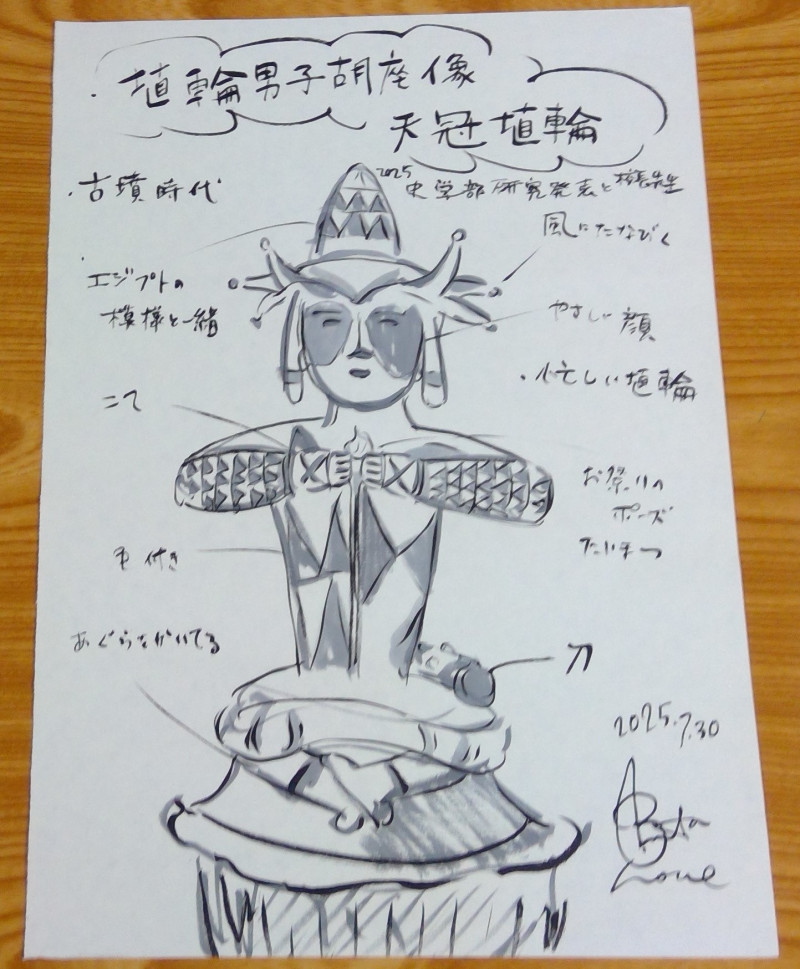 埴輪男子胡座像
天冠埴輪
・古墳時代
2025 史学部研究発表と
風にたなびく
エジプトの
模様と一緒
やさしい顔
・忙しい埴輪
こて
お祭りの
ポーズ
たいまつ
付き
あぐらをかいてる
刀
2025.7.30